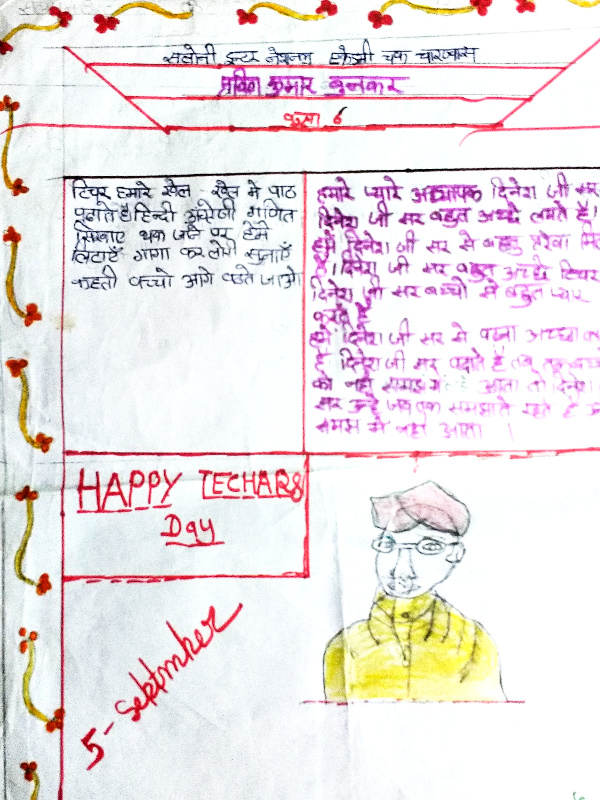 सलोनी इन्टर नेशनल एकेडमी चक चारणवास
प्रविण कुमार बुनकर
कक्षा 6
टिचर हमारे खेल - खेल मे पाठ
पढाते है हिन्दी अंग्रेजी गणित
सिखाए थक जाने पर हमे
लिटाएँ गागा कर लोरी सुनाएँ
कहती बच्चो आगे बढते जाओ
हमारे प्यारे अध्यापक दिनेश जी सर
दिनेश जी सर बहुत अच्छे लगते है।
हमे दिनेश जी सर से बहुत
है। दिनेश जी सर बहुत अच्छे टिचर
दिनेश जी सर बच्चो से बहुत प्यार
करते है
हमे दिनेश जी सर से पढना अच्छा
है दिनेश जी सर पढाते है तब
को नही समझ में आता तो दिनेश
सर उन्हे जब तक समझाते रहते है
समझ मे नही आता ।
HAPPY TECHARS
Day
5- Sektmber